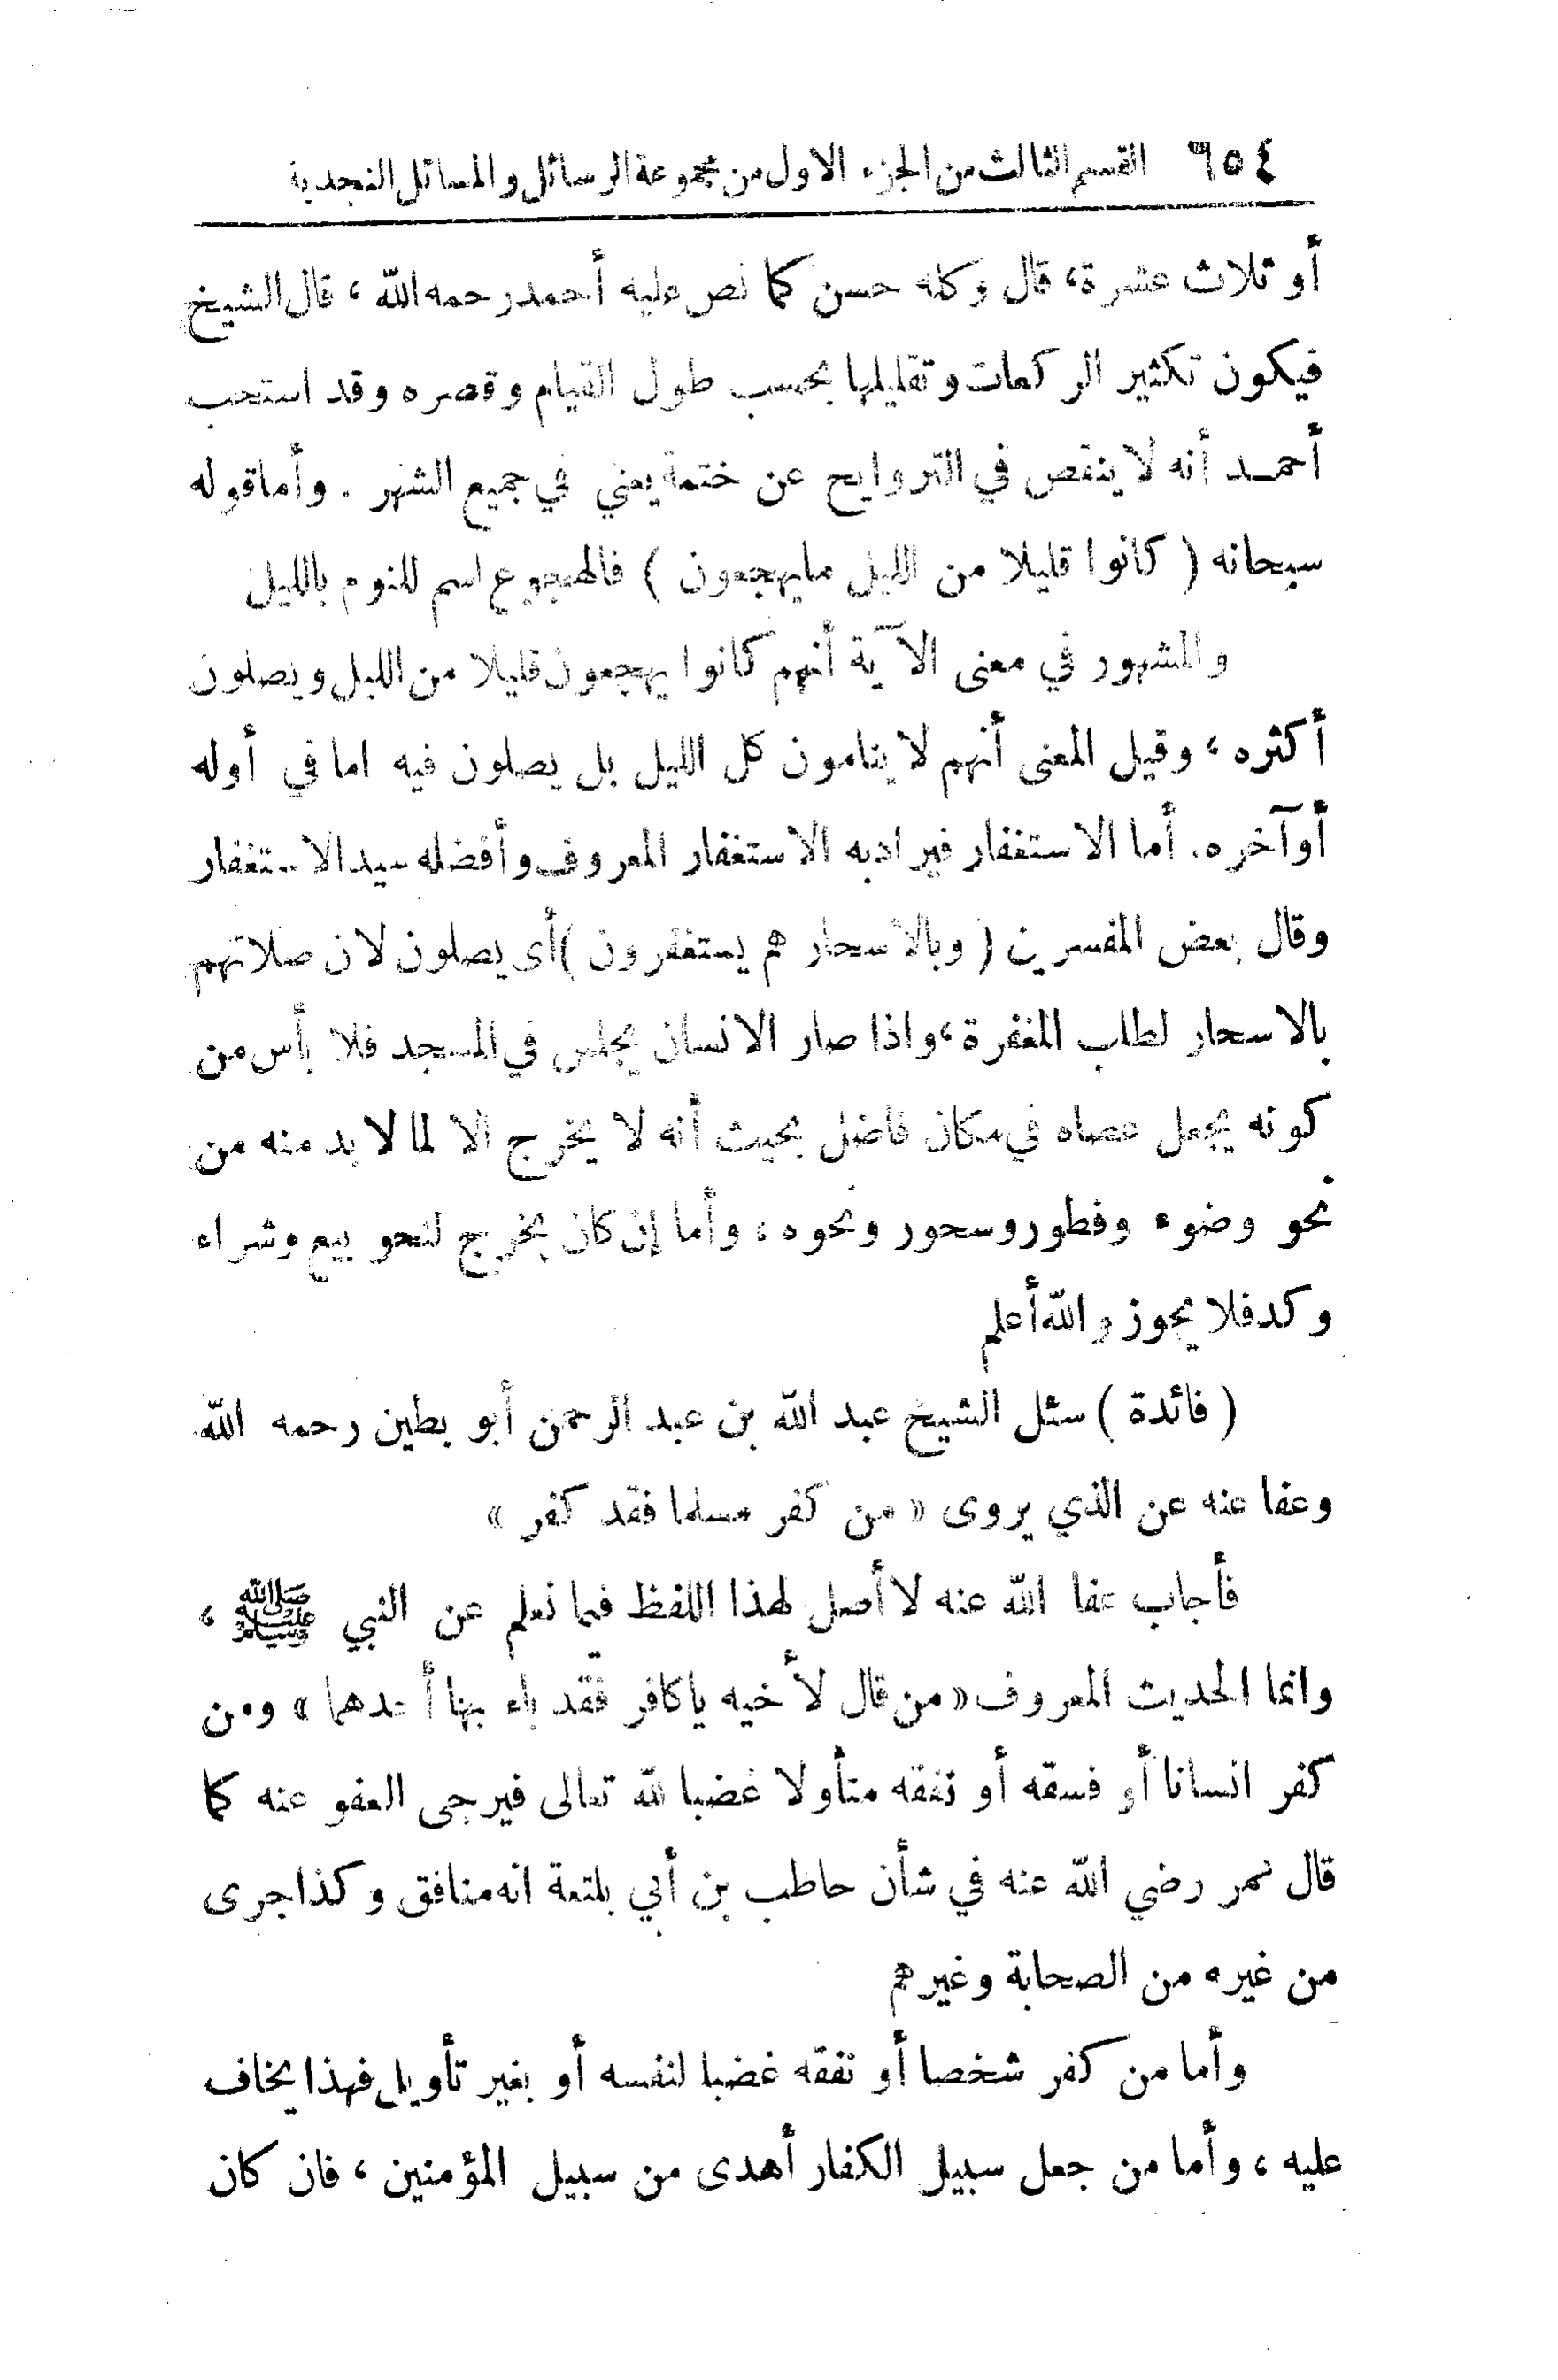 ٦٥٤ القسم الثالث من الجزء الاول من مجموعة الرسائل والمسائل النجدية
أو ثلاث عشرة، قال وكله حسن كما نص عليه أحمد رحمه الله ، قال الشيخ
فيكون تكثير الركعات وتقليلها بحسب طول القيام وقصره وقد استحب
أحمد أنه لا ينقص في التروايح عن ختمة يعني في جميع الشهر . وأما قوله
سبحانه ( كانوا قليلا من الليل مايهجعون ) فالهجوع اسم للنوم بالليل
والمشهور في معنى الآية أنهم كانوا يهجعون قليلا من الليل ويصلون
أكثره ، وقيل المعنى أنهم لا ينامون كل الليل بل يصلون فيه اما في أوله
أو آخره. أما الاستغفار فيراد به الاستغفار المعروف وأفضله سيد الاستغفار
وقال بعض المفسرين ( وبالاسحار هم يستغفرون ) أى يصلون لان صلاتهم
بالاسحار لطلب المغفرة، واذا صار الانسان يجلس في المسجد فلا بأس من
كونه يجعل عصاه في مكان فاضل بحيث أنه لا يخرج الا لما لا بد منه من
نحو وضوء وفطور وسحور ونحوه ، وأما إن كان يخرج لنحو بيع وشراء
وكد فلا يجوز والله أعلم
( فائدة ) سئل الشيخ عبد الله بن عبد الرحمن أبو بطين رحمه الله
وعفا عنه عن الذي يروى « من كفر مسلما فقد كفر »
فأجاب عفا الله عنه لا أصل لهذا اللفظ فيما نعلم عن النبي ﷺ ،
وانما الحديث المعروف « من قال لأخيه ياكافر فقد باء بها أحدهما » ومن
كفر انسانا أو فسقه أو نفقه متأولا غضبا لله تعالى فيرجى العفو عنه كما
قال عمر رضي الله عنه في شأن حاطب بن أبي بلتعة انه منافق وكذا جرى
من غيره من الصحابة وغيرهم
وأما من كفر شخصا أو نفقه غضبا لنفسه أو بغير تأويل فهذا يخاف
عليه ، وأما من جعل سبيل الكفار أهدى من سبيل المؤمنين ، فان كان